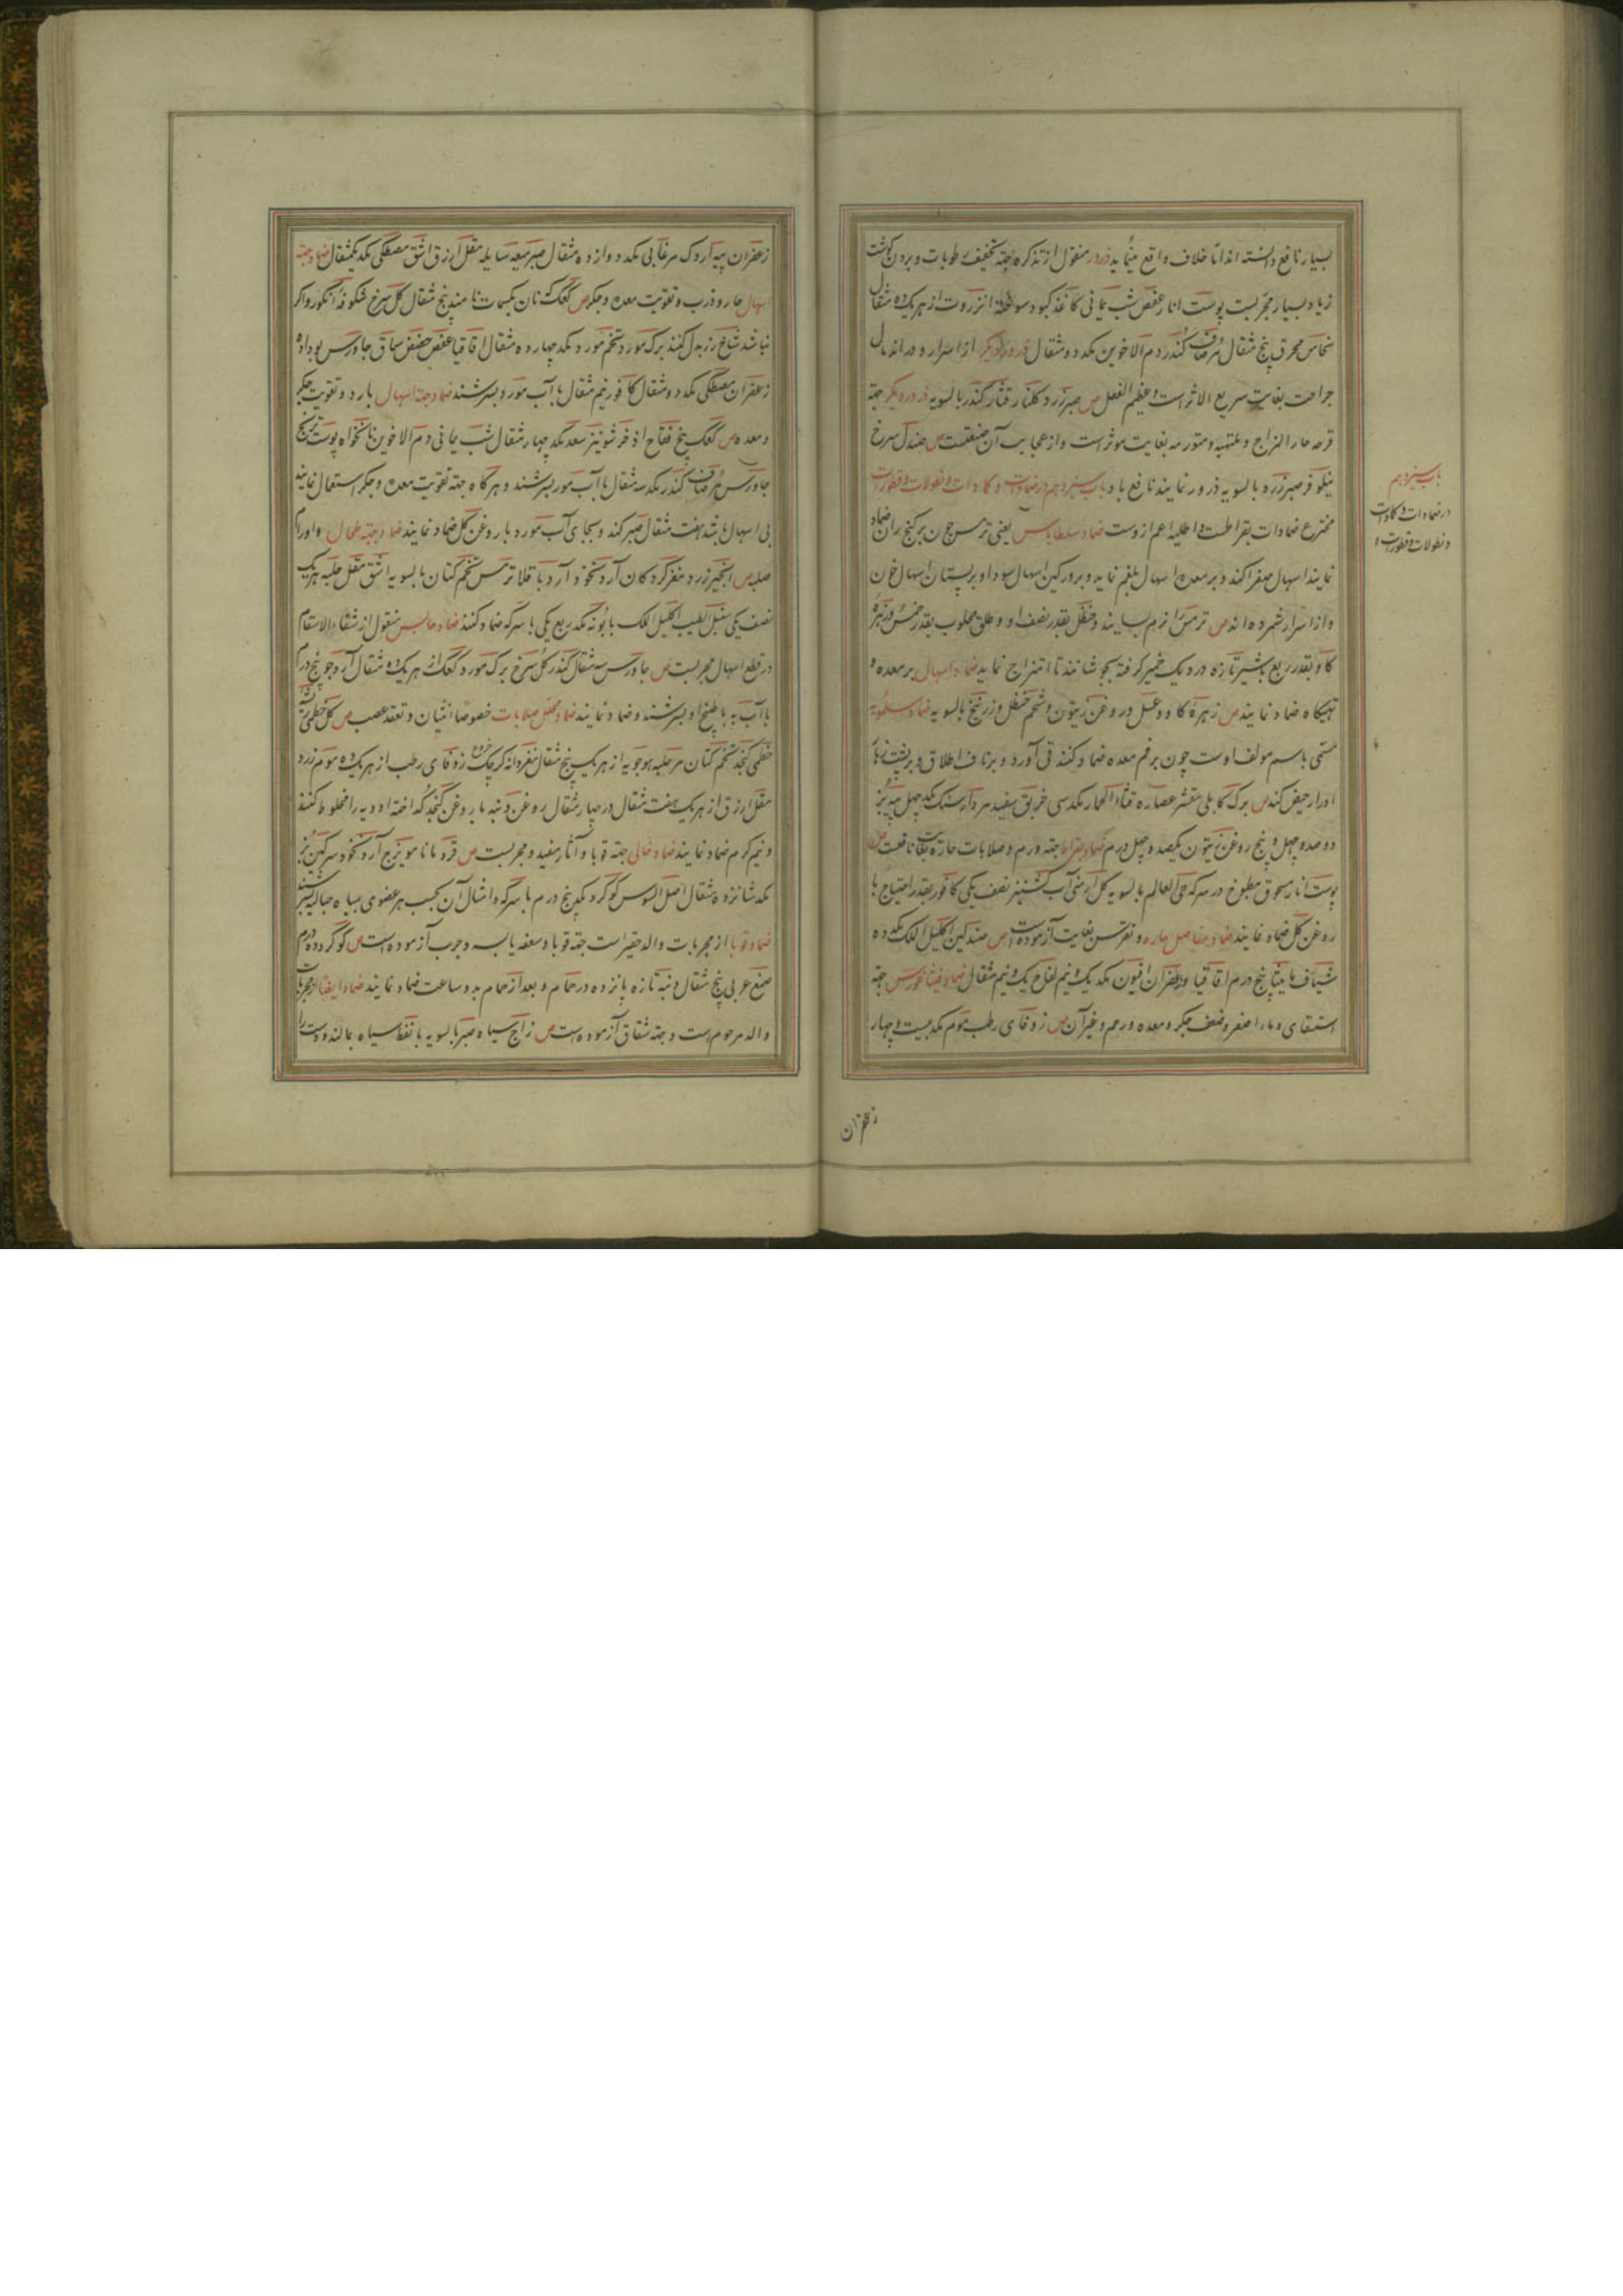 بسیار نافع دانسته اند اما خلاف واقع مینماید ذرور منقول از تذکره جهة تخفیف رطوبات و بردن گوشت
زیاد بسیار مجربست پوست انار عفص شب یمانی کاغذ کبود سوخته انزروت از هریک ده مثقال
نحاس محرق پنج مثقال مر صاف کندر دم الاخوین هریک دو مثقال ذرور دیگر از اسرار و در اندمال
جراحت بغایت سریع الاثر است و عظیم الفعل ص صبر زرد گلنار قشار کندر بالسویه ذرور دیگر جهة
قرحه حار المزاج و ملتهبه و متورمه بغایت موثر است و از عجایب آن صنعتست ص صندل سرخ
نیلوفر صبر زرد بالسویه ذرور نمایند نافع باد باب سیزدهم در ضمادات و کمادات و نطولات و قطورات
مخترع ضمادات بقراطست و اطلیه اعم از وست ضماد سلطایاس یعنی ترمس چون بر کنج ران ضماد
نمایند اسهال صفرا کند و بر معده اسهال بلغم نماید و بر ورکین اسهال سودا و بر پستان اسهال خون
و از اسرار شمرده اند ص ترمس را نرم بسایند و حنظل بقدر نصف او و طلق محلوب بقدر خمس و زهره
کاو بقدر ربع با شیر تازه در دیک خمیر گرفته بجوشانند تا امتزاج نماید ضماد اسهال بر معده و
تهیکاه ضماد نمایند ص زهره کاو و عسل در روغن زیتون و شحم حنظل و زرنیخ بالسویه ضماد سلمویه
مسمی باسم مولف اوست چون بر فم معده ضماد کنند قی آورد و بر ناف اطلاق و بر پشت زهار
ادرار حیض کند ص برک کابلی مقشر عصاره قثاء الحمار هریک سی خربق سفید مردارسنک هریک چهل
دو صد و چهل و پنج روغن زیتون یکصد و چهل درم ضماد بقراط جهة ورم و صلابات حاره بغایت نافعست ص
پوست انار مسحوق مطبوخ در سرکه حی العالم بالسویه گل ارمنی آب کشنیز نصف یکی کافور بقدر احتیاج با
روغن گل ضماد نمایند ضماد مفاصل حاره و نقرس بغایت آزموده است ص صندلین اکلیل الملک هریک ده
شیاف مامیثا پنج درم اقاقیا و زعفران افیون هریک یک و نیم لفاح یک و نیم مثقال ضماد فیثاغورس جهة
استسقای و ماء اصفر و ضعف جگر و معده و رحم و غیر آن ص زوفای رطب موم هریک بیست و چهار
زعفران
باب سیزدهم
در ضمادات و کمادات
و نطولات و قطورات
زعفران پیه اردک مرغابی هریک دوازده مثقال صبر میعه سایله مقل ازرق اشق مصطکی هریک یکمثقال ضماد جهة
اسهال حار و ذرب و تقویت معده و جگر ص کعک که نان یکسمات نامند پنج مثقال گل سرخ شکوفه انکور و اگر
نباشد شاخ رز بدل کنند برک مورد تخم مورد هریک چهارده مثقال اقاقیا عفص حضض سماق جاورس بوداده
زعفران مصطکی هریک دو مثقال کافور نیم مثقال با آب مورد بسرشند ضماد جهة اسهال بارد و تقویت جگر
و معده ص کعک پنج فقاح اذخر شونیز سعد هریک چهار مثقال شب یمانی دم الاخوین نانخواه پوست ترنج
جاورس مر صاف کندر هریک سه مثقال با آب مورد بسرشند و هرگاه جهة تقویت معده و جگر استعمال نمایند
بی اسهال باشد هفت مثقال صبر کند و بجای آب مورد با روغن گل ضماد نمایند ضماد جهة طحال و اورام
صلبه ص انجیر زرد مغز گردکان آرد نخود آرد باقلا ترمس تخم کتان بالسویه اشق مقل حلبه هریک
نصف یکی سنبل الطیب اکلیل الملک بابونه هریک ربع یکی با سرکه ضماد کنند ضماد حابس منقول از شفاء الاسقام
در قطع اسهال مجربست ص جاورس سه مثقال کندر گل سرخ برک مورد کعک از هریک ده مثقال آرد جو پنج درم
با آب به یا طبیخ او بسرشند و ضماد نمایند ضماد محلل صلابات خصوصا انثیان و تعقد عصب ص گل خطمی ریشه
خطمی کنجد تخم کتان مر حلبه هوجویه از هریک پنج مثقال مغز دانه کرچک زوفای رطب از هریک ده موم زرد
مقل ازرق از هریک هفت مثقال در چهار مثقال روغن دنبه با روغن کنجد گداخته ادویه را مخلوط کنند
و نیم گرم ضماد نمایند ضماد خالی جهة قوبا و آثار مفید و مجربست ص قردمانا مویزج آرد نخود سرگین بز
هریک شانزده مثقال اصل السوس گوگرد هریک پنج درم با سرکه و امثال آن بحسب هر عضوی
ضماد قوبا از مجربات والد حقیر است جهة قوبا و سعفه یابسه و جرب آزموده است ص گوگرد ده درم
صمغ عربی پنج مثقال دنبه تازه پانزده در حمام و بعد از حمام بدو ساعت ضماد نمایند ضماد ایضا از مجربات
والد مرحوم است و جهة شقاق آزموده است ص زاج سیاه صبر بالسویه با نفط سیاه بمالند و دست را